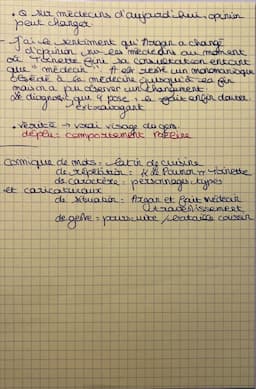 • Q sur médecins d'aujourd'hui, opinion
peut changer
- J'ai le sentiment qu'Argan a changé
d'opinion sur les médecins au moment
où Toinette fait sa consultation en tant
que "médecin". Argan un monomaniaque
obsédé à la médecine jusqu'à sa fin
mais on a pu observer un changement
le diagnostique posé, le fait enfin douter
extravagant
• vérité → vrai visage des gens
déplu : comportement
Comique de mots : latin de cuisine
de répétition : "le Poumon" Toinette
de caractère : personnages types
et caricaturaux
de situation : Argan et faux médecin
travestissement
de geste : poursuite, bataille coussin